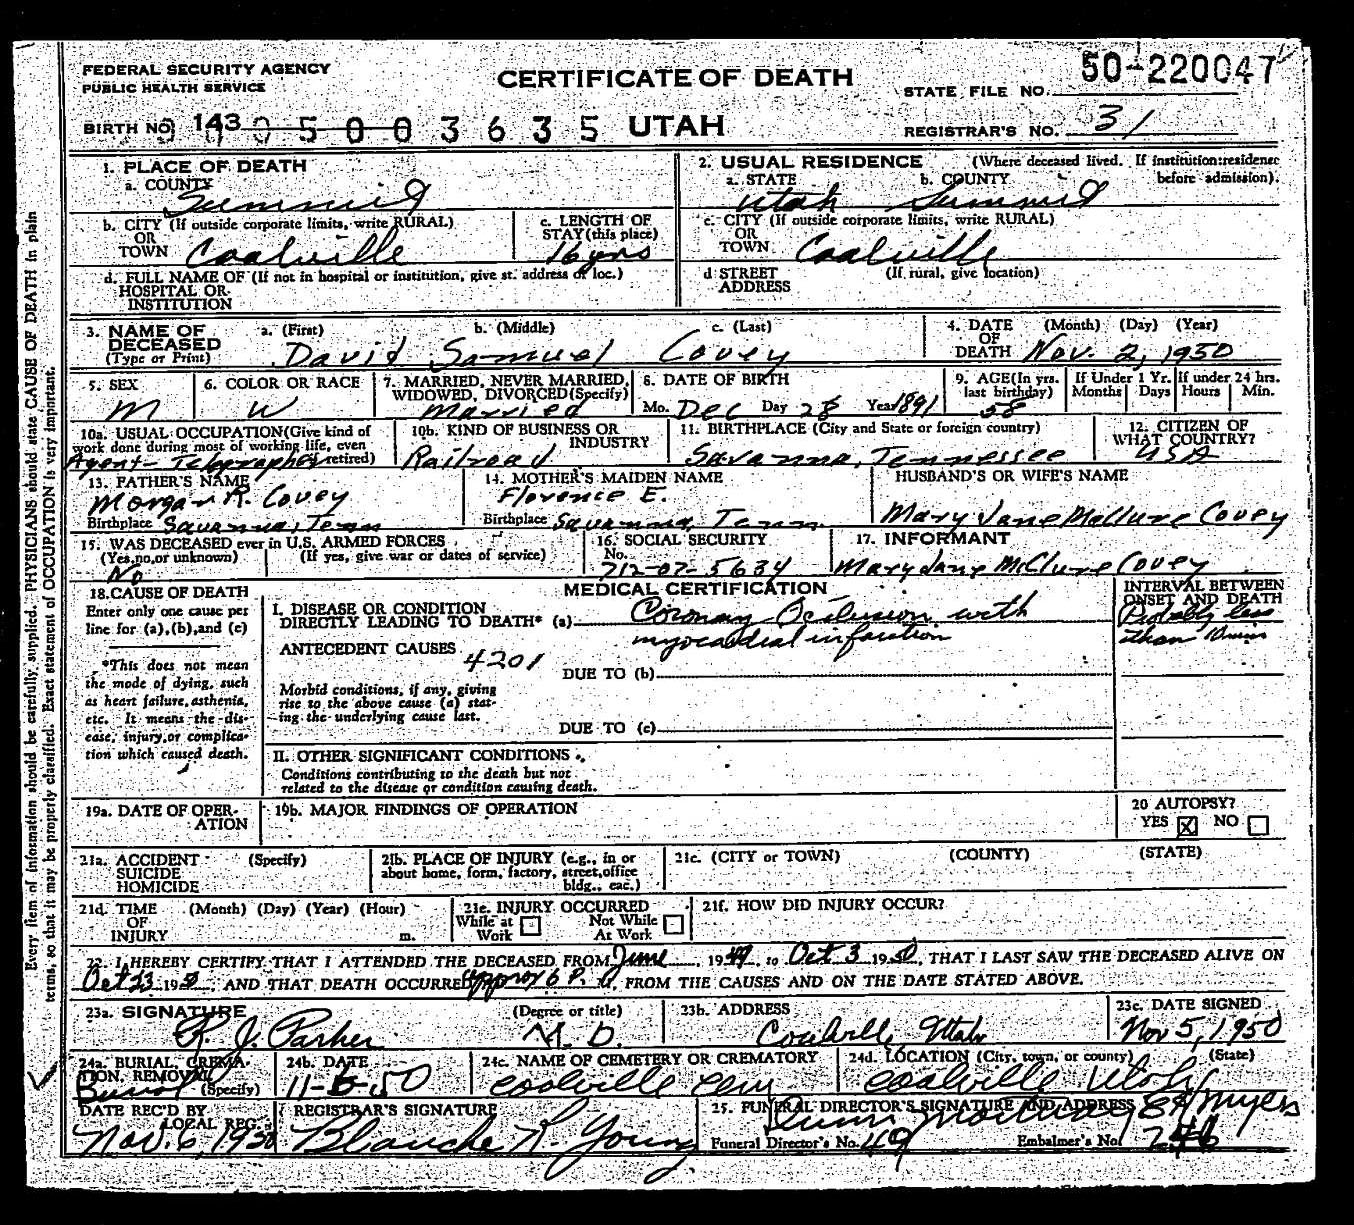 FEDERAL SECURITY AGENCY
PUBLIC HEALTH SERVICE
CERTIFICATE OF DEATH
STATE FILE NO. 50-220047
BIRTH NO. 143 0500 3635 UTAH
REGISTRAR'S NO. 31
Every item of information should be carefully supplied. PHYSICIANS should state CAUSE OF DEATH in plain
terms, so that it may be properly classified. Exact statement of OCCUPATION is very important.
1. PLACE OF DEATH
a. COUNTY Summit
b. CITY (If outside corporate limits, write RURAL)
OR
TOWN Coalville
c. LENGTH OF
STAY (this place)
16 yrs
d. FULL NAME OF (If not in hospital or institution, give st. address or loc.)
HOSPITAL OR
INSTITUTION
2. USUAL RESIDENCE (Where deceased lived. If institution: residence
before admission).
a. STATE Utah b. COUNTY Summit
c. CITY (If outside corporate limits, write RURAL)
OR
TOWN Coalville
d STREET (If rural, give location)
ADDRESS
3. NAME OF
DECEASED
(Type or Print)
a. (First) b. (Middle) c. (Last)
David Samuel Covey
4. DATE (Month) (Day) (Year)
OF
DEATH Nov. 2, 1950
5. SEX
M
6. COLOR OR RACE
W
7. MARRIED, NEVER MARRIED,
WIDOWED, DIVORCED (Specify)
Married
8. DATE OF BIRTH
Mo. Dec Day 28 Year 1891
9. AGE (In yrs.
last birthday)
58
If Under 1 Yr.
Months Days
If under 24 hrs.
Hours Min.
10a. USUAL OCCUPATION (Give kind of
work done during most of working life, even
retired)
Agent-Telegrapher
10b. KIND OF BUSINESS OR
INDUSTRY
Railroad
11. BIRTHPLACE (City and State or foreign country)
Savanna, Tennessee
12. CITIZEN OF
WHAT COUNTRY?
USA
13. FATHER'S NAME
Morgan R. Covey
Birthplace Savanna, Tenn
14. MOTHER'S MAIDEN NAME
Florence E.
Birthplace Savanna, Tenn
HUSBAND'S OR WIFE'S NAME
Mary Jane McClure Covey
15. WAS DECEASED ever in U.S. ARMED FORCES
(Yes, no, or unknown) (If yes, give war or dates of service)
No
16. SOCIAL SECURITY
No.
712-07-5634
17. INFORMANT
Mary Jane McClure Covey
18. CAUSE OF DEATH
Enter only one cause per
line for (a), (b), and (c)
*This does not mean
the mode of dying, such
as heart failure, asthenia,
etc. It means the dis-
ease, injury, or complica-
tion which caused death.
MEDICAL CERTIFICATION
I. DISEASE OR CONDITION
DIRECTLY LEADING TO DEATH* (a) Coronary Occlusion with
myocardial infarction
ANTECEDENT CAUSES 4201
DUE TO (b)
Morbid conditions, if any, giving
rise to the above cause (a) stat-
ing the underlying cause last.
DUE TO (c)
II. OTHER SIGNIFICANT CONDITIONS
Conditions contributing to the death but not
related to the disease or condition causing death.
INTERVAL BETWEEN
ONSET AND DEATH
Probably less
than 10 min
19a. DATE OF OPER-
ATION
19b. MAJOR FINDINGS OF OPERATION
20 AUTOPSY?
YES X NO
21a. ACCIDENT (Specify)
SUICIDE
HOMICIDE
21b. PLACE OF INJURY (e.g., in or
about home, form, factory, street, office
bldg., eac.)
21c. (CITY or TOWN) (COUNTY) (STATE)
21d. TIME (Month) (Day) (Year) (Hour)
OF
INJURY m.
21e. INJURY OCCURRED
While at Work Not While At Work
21f. HOW DID INJURY OCCUR?
22. I HEREBY CERTIFY THAT I ATTENDED THE DECEASED FROM June, 1949 to Oct 3 1950, THAT I LAST SAW THE DECEASED ALIVE ON
Oct 23 1950, AND THAT DEATH OCCURRED approx 6 P. M. FROM THE CAUSES AND ON THE DATE STATED ABOVE.
23a. SIGNATURE (Degree or title)
R. J. Parker M. D.
23b. ADDRESS
Coalville, Utah
23c. DATE SIGNED
Nov 5, 1950
24a. BURIAL, CREMA-
TION, REMOVAL
(Specify)
Burial
24b. DATE
11-6-50
24c. NAME OF CEMETERY OR CREMATORY
Coalville Cem
24d. LOCATION (City, town, or county) (State)
Coalville Utah
DATE REC'D BY
LOCAL REG.
Nov 6, 1950
REGISTRAR'S SIGNATURE
Blanche R. Young
25. FUNERAL DIRECTOR'S SIGNATURE AND ADDRESS
Myers
Funeral Director's No. 49 Embalmer's No. 246